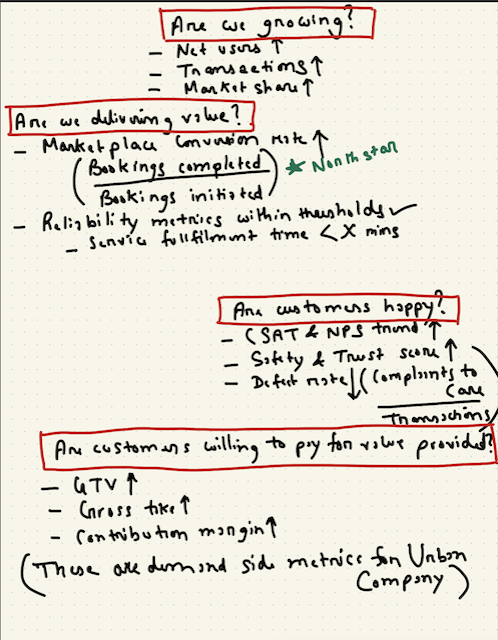 Are we growing?
- Net users ↑
- Transactions ↑
- Market share ↑
Are we delivering value?
- Marketplace conversion rate ↑
(Bookings completed
Bookings initiated)
* North star
- Reliability metrics within thresholds ✓
- Service fullfilment time < X mins
Are customers happy?
- CSAT & NPS trend ↑
- Safety & Trust score ↑
- Defect rate ↓ (Complaints to
Care
Transactions)
Are customers willing to pay for value provided?
- GTV ↑
- Gross take ↑
- Contribution margin ↑
(These are demand side metrics for Urban
Company)